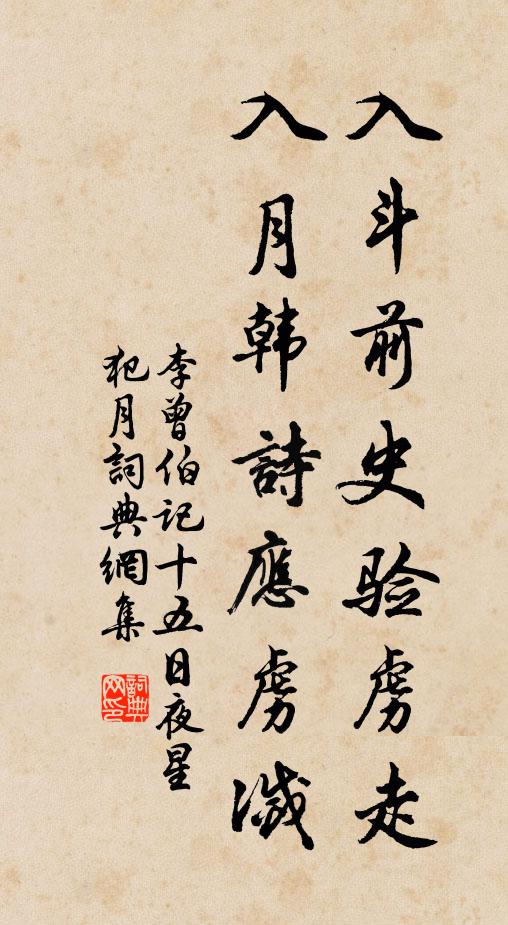 入斗前史验虏走
入月韩詩應虏滅
李曾伯記十五日夜星
犯月詞典網集
詞典网印